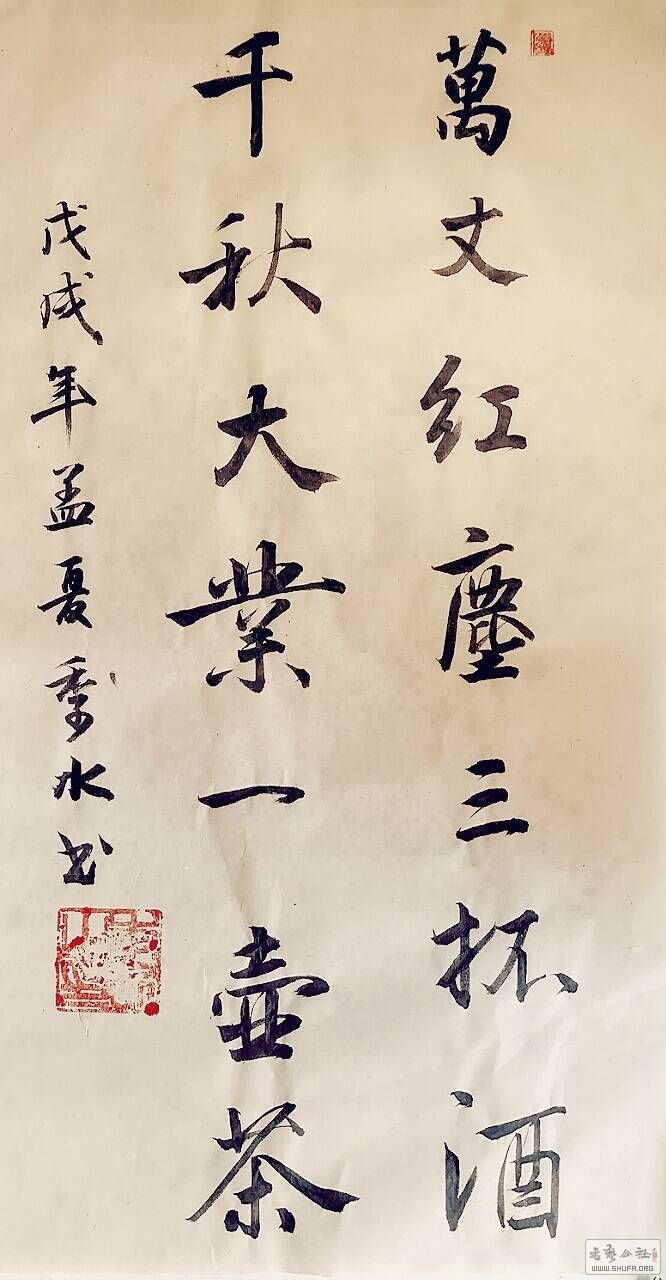 萬丈红塵三杯酒
千秋大業一壺茶
戊戌年孟夏季水书
书艺公社
WWW.SHUFA.ORG